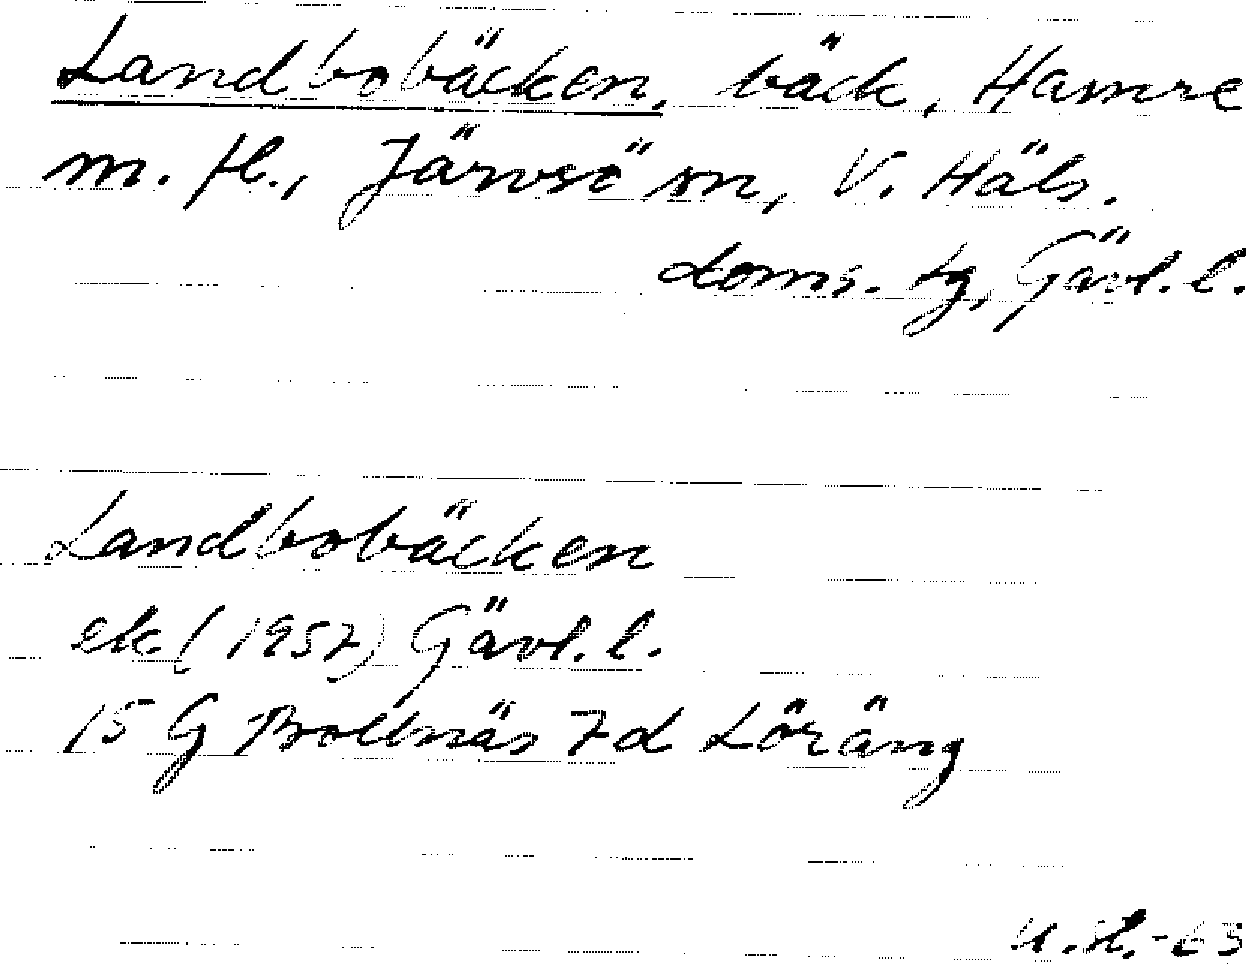 Landbobäcken, bäck, Hamre
m. fl., Järvsö sn, V. Häls.
doms. tg, Gävl. l.
Landbobäcken
ek (1957) Gävl. l.
15 G Bollnäs 7d Löräng
-63